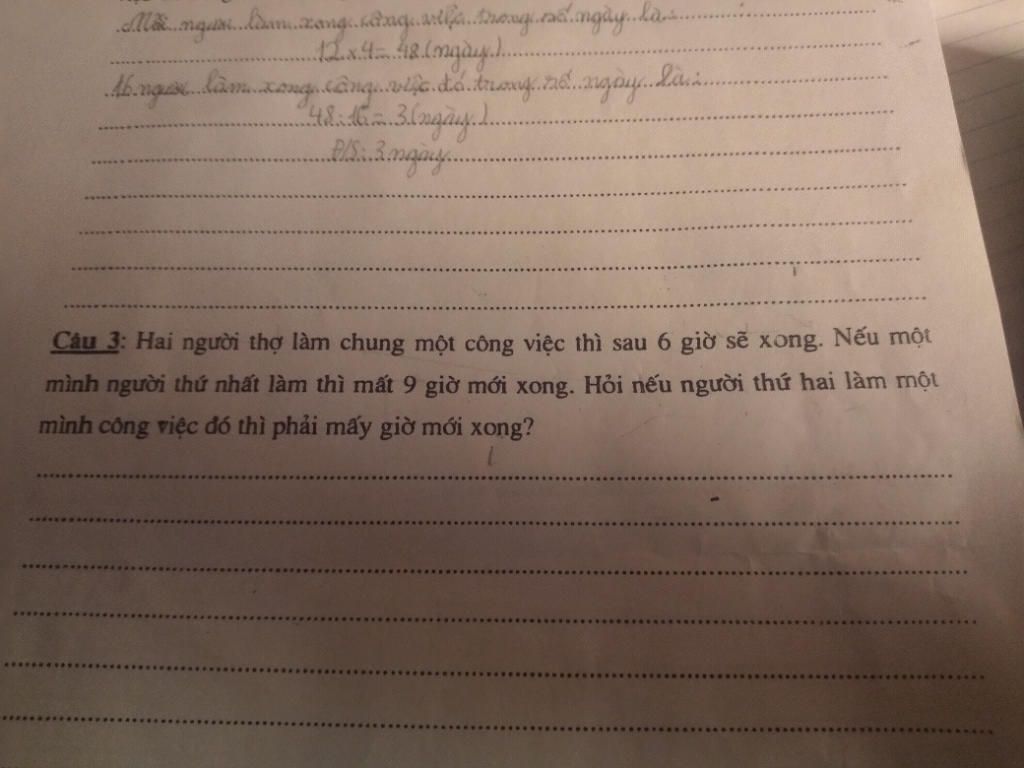 Mỗi người làm xong công việc trong số ngày là:
12 x 4 = 48 (ngày)
16 người làm xong công việc đó trong số ngày là:
48 : 16 = 3 (ngày)
Đ/S: 3 ngày
Câu 3: Hai người thợ làm chung một công việc thì sau 6 giờ sẽ xong. Nếu một
mình người thứ nhất làm thì mất 9 giờ mới xong. Hỏi nếu người thứ hai làm một
mình công việc đó thì phải mấy giờ mới xong?